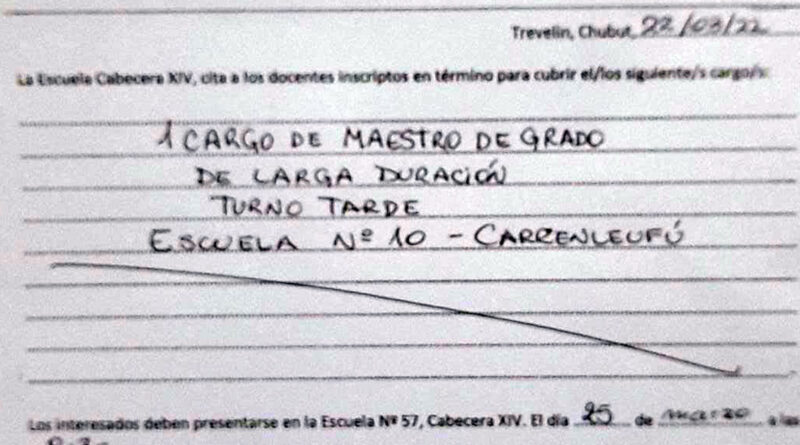 Trevelin, Chubut, 22/03/22
La Escuela Cabecera XIV, cita a los docentes inscriptos en término para cubrir el/los siguiente/s cargo/s:
1 CARGO DE MAESTRO DE GRADO
DE LARGA DURACIÓN
TURNO TARDE
ESCUELA Nº 10 - CARRENLEUFÚ
Los interesados deben presentarse en la Escuela Nº 57, Cabecera XIV. El día 25 de marzo a las